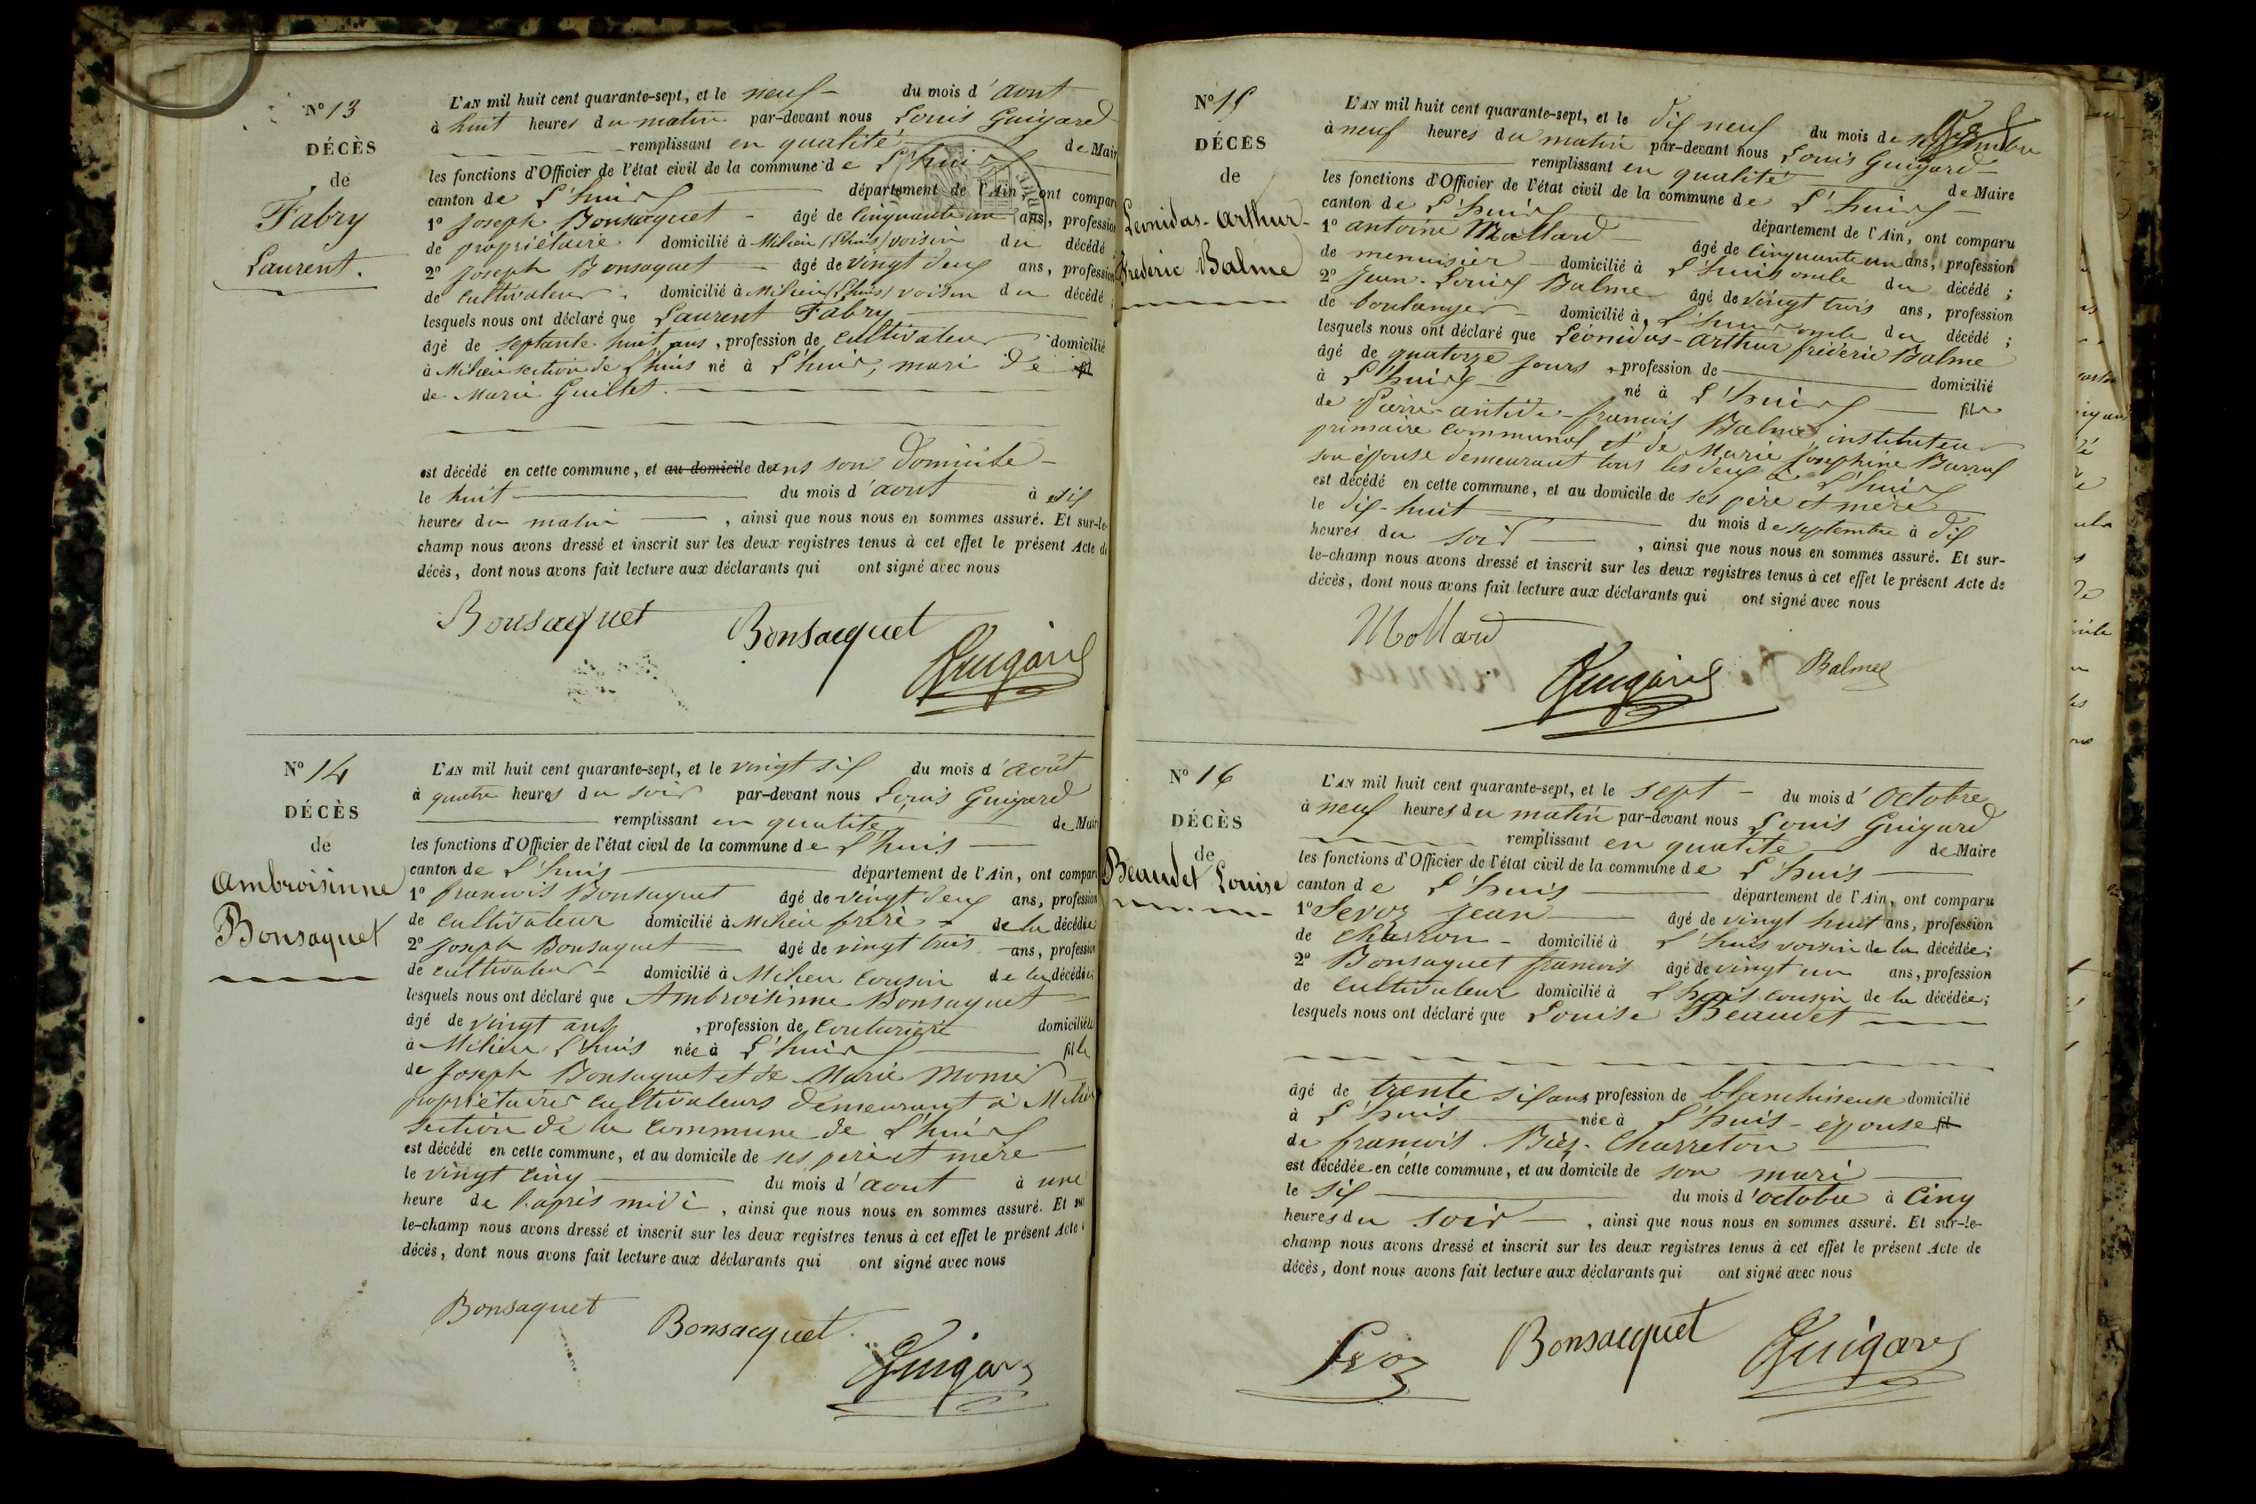 N° 13
DÉCÈS
de
Fabry
Laurent.
L'AN mil huit cent quarante-sept, et le neuf du mois d'aout
à huit heures du matin par-devant nous Louis Guigard
remplissant en qualité de Mair
les fonctions d'Officier de l'état civil de la commune de L'huis
canton de L'huis département de l'Ain, ont compar
1° Joseph Bonsacquet âgé de cinquante un ans, profession
de propriétaire domicilié à Milieu (Lhuis) voisin du décédé
2° Joseph Bonsaquet âgé de vingt deux ans, profession
de cultivateur domicilié à Milieu (Lhuis) voisin du décédé
lesquels nous ont déclaré que Laurent Fabry
âgé de septante huit ans, profession de cultivateur domicilié
à Milieu section de L'huis né à L'huis, mari de fil
de Marie Guillet.
est décédé en cette commune, et au domicile dans son domicile
le huit du mois d'aout à six
heures du matin, ainsi que nous nous en sommes assuré. Et sur-le-
champ nous avons dressé et inscrit sur les deux registres tenus à cet effet le présent Acte de
décès, dont nous avons fait lecture aux déclarants qui ont signé avec nous
Bonsacquet Bonsacquet
Guigard
N° 14
DÉCÈS
de
Ambroisinne
Bonsaquet
L'AN mil huit cent quarante-sept, et le vingt six du mois d'août
à quatre heures du soir par-devant nous Louis Guigard
remplissant en qualité de Mair
les fonctions d'Officier de l'état civil de la commune de L'huis
canton de L'huis département de l'Ain, ont compar
1° francois Bonsaquet âgé de vingt deux ans, profession
de cultivateur domicilié à Milieu frère de la décédée
2° Joseph Bonsaquet âgé de vingt trois ans, profession
de cultivateur domicilié à Milieu cousin de la décédée
lesquels nous ont déclaré que Ambroisinne Bonsaquet
âgé de vingt ans, profession de couturière domiciliée
à Milieu L'huis née à L'huis fille
de Joseph Bonsaquet et de Marie Monier
propriétaires cultivateurs demeurant à Milieu
section de la commune de L'huis
est décédé en cette commune, et au domicile de ses père et mère
le vingt cinq du mois d'aout à une
heure de l'après midi, ainsi que nous nous en sommes assuré. Et sur
le-champ nous avons dressé et inscrit sur les deux registres tenus à cet effet le présent Acte
décès, dont nous avons fait lecture aux déclarants qui ont signé avec nous
Bonsaquet Bonsacquet
Guigard
N° 15
DÉCÈS
de
Leonidas-Arthur-
frederic Balme
L'AN mil huit cent quarante-sept, et le dix neuf du mois de septembre
à neuf heures du matin par-devant nous Louis Guigard
remplissant en qualité de Maire
les fonctions d'Officier de l'état civil de la commune de L'huis
canton de L'huis département de l'Ain, ont comparu
1° antoine Mollard âgé de cinquante un ans, profession
de menuisier domicilié à L'huis oncle du décédé;
2° Jean-Louis Balme âgé de vingt trois ans, profession
de boulanger domicilié à L'huis oncle du décédé;
lesquels nous ont déclaré que Léonidas-Arthur fréderic Balme
âgé de quatorze jours, profession de domicilié
à L'huis né à L'huis fils
de Pierre-antide-francois Balme instituteur
primaire communal et de Marie Josephine Burral
son épouse demeurant tous les deux à L'huis
est décédé en cette commune, et au domicile de ses père et mère
le dix-huit du mois de septembre à dix
heures du soir, ainsi que nous nous en sommes assuré. Et sur-
le-champ nous avons dressé et inscrit sur les deux registres tenus à cet effet le présent Acte de
décès, dont nous avons fait lecture aux déclarants qui ont signé avec nous
Mollard
Guigard Balme
N° 16
DÉCÈS
de
Beaudet Louise
L'AN mil huit cent quarante-sept, et le sept du mois d'Octobre
à neuf heures du matin par-devant nous Louis Guigard
remplissant en qualité de Maire
les fonctions d'Officier de l'état civil de la commune de L'huis
canton de L'huis département de l'Ain, ont comparu
1° Sevoz Jean âgé de vingt huit ans, profession
de charron domicilié à L'huis voisin de la décédée;
2° Bonsaquet francois âgé de vingt un ans, profession
de cultivateur domicilié à L'huis cousin de la décédée;
lesquels nous ont déclaré que Louise Beaudet
âgé de trente six ans profession de blanchisseuse domicilié
à L'huis née à L'huis - épouse fil
de francois Biez-Charreton
est décédée en cette commune, et au domicile de son mari
le six du mois d'octobre à cinq
heures du soir, ainsi que nous nous en sommes assuré. Et sur-le-
champ nous avons dressé et inscrit sur les deux registres tenus à cet effet le présent Acte de
décès, dont nous avons fait lecture aux déclarants qui ont signé avec nous
Sevoz Bonsacquet Guigard